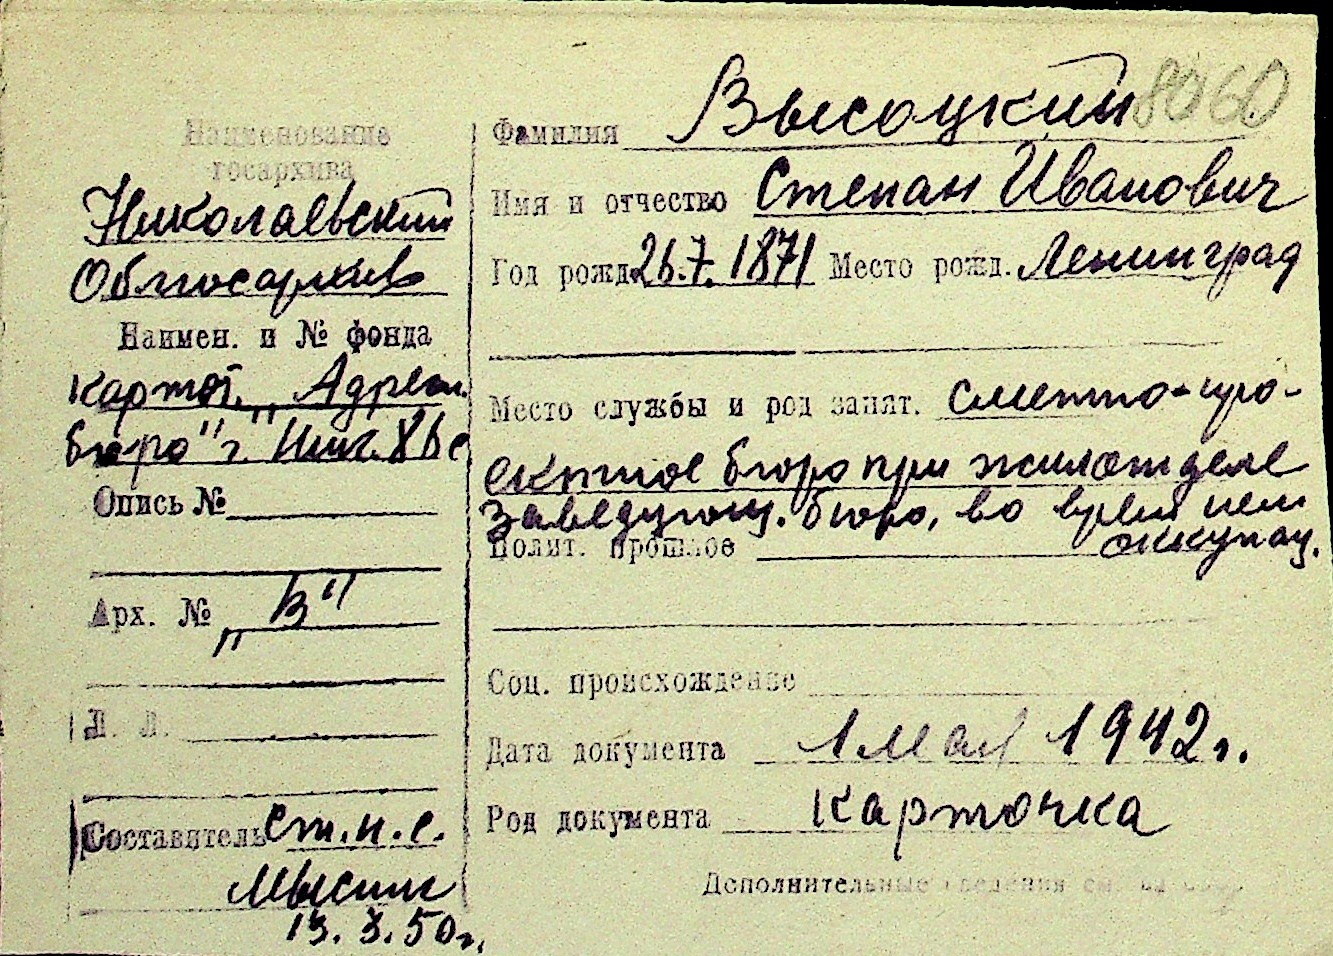 8060
Наименование
госархива
Николаевский
Облгосархив
Наимен. и № фонда
картот. „Адресн.
бюро" г.
Опись №
Арх. № „В"
Л. Л.
Составитель ст.н.с.
13.3.50г.
Фамилия Высоцкий
Имя и отчество Степан Иванович
Год рожд. 26.7.1871 Место рожд. Ленинград
Место службы и род занят. сметно-про-
ектное бюро при жилотделе
Заведующ. бюро, во время нем
Полит. прошлое оккупац.
Соц. происхождение
Дата документа 1 мая 1942г.
Род документа карточка
Дополнительные сведения см. на обор.